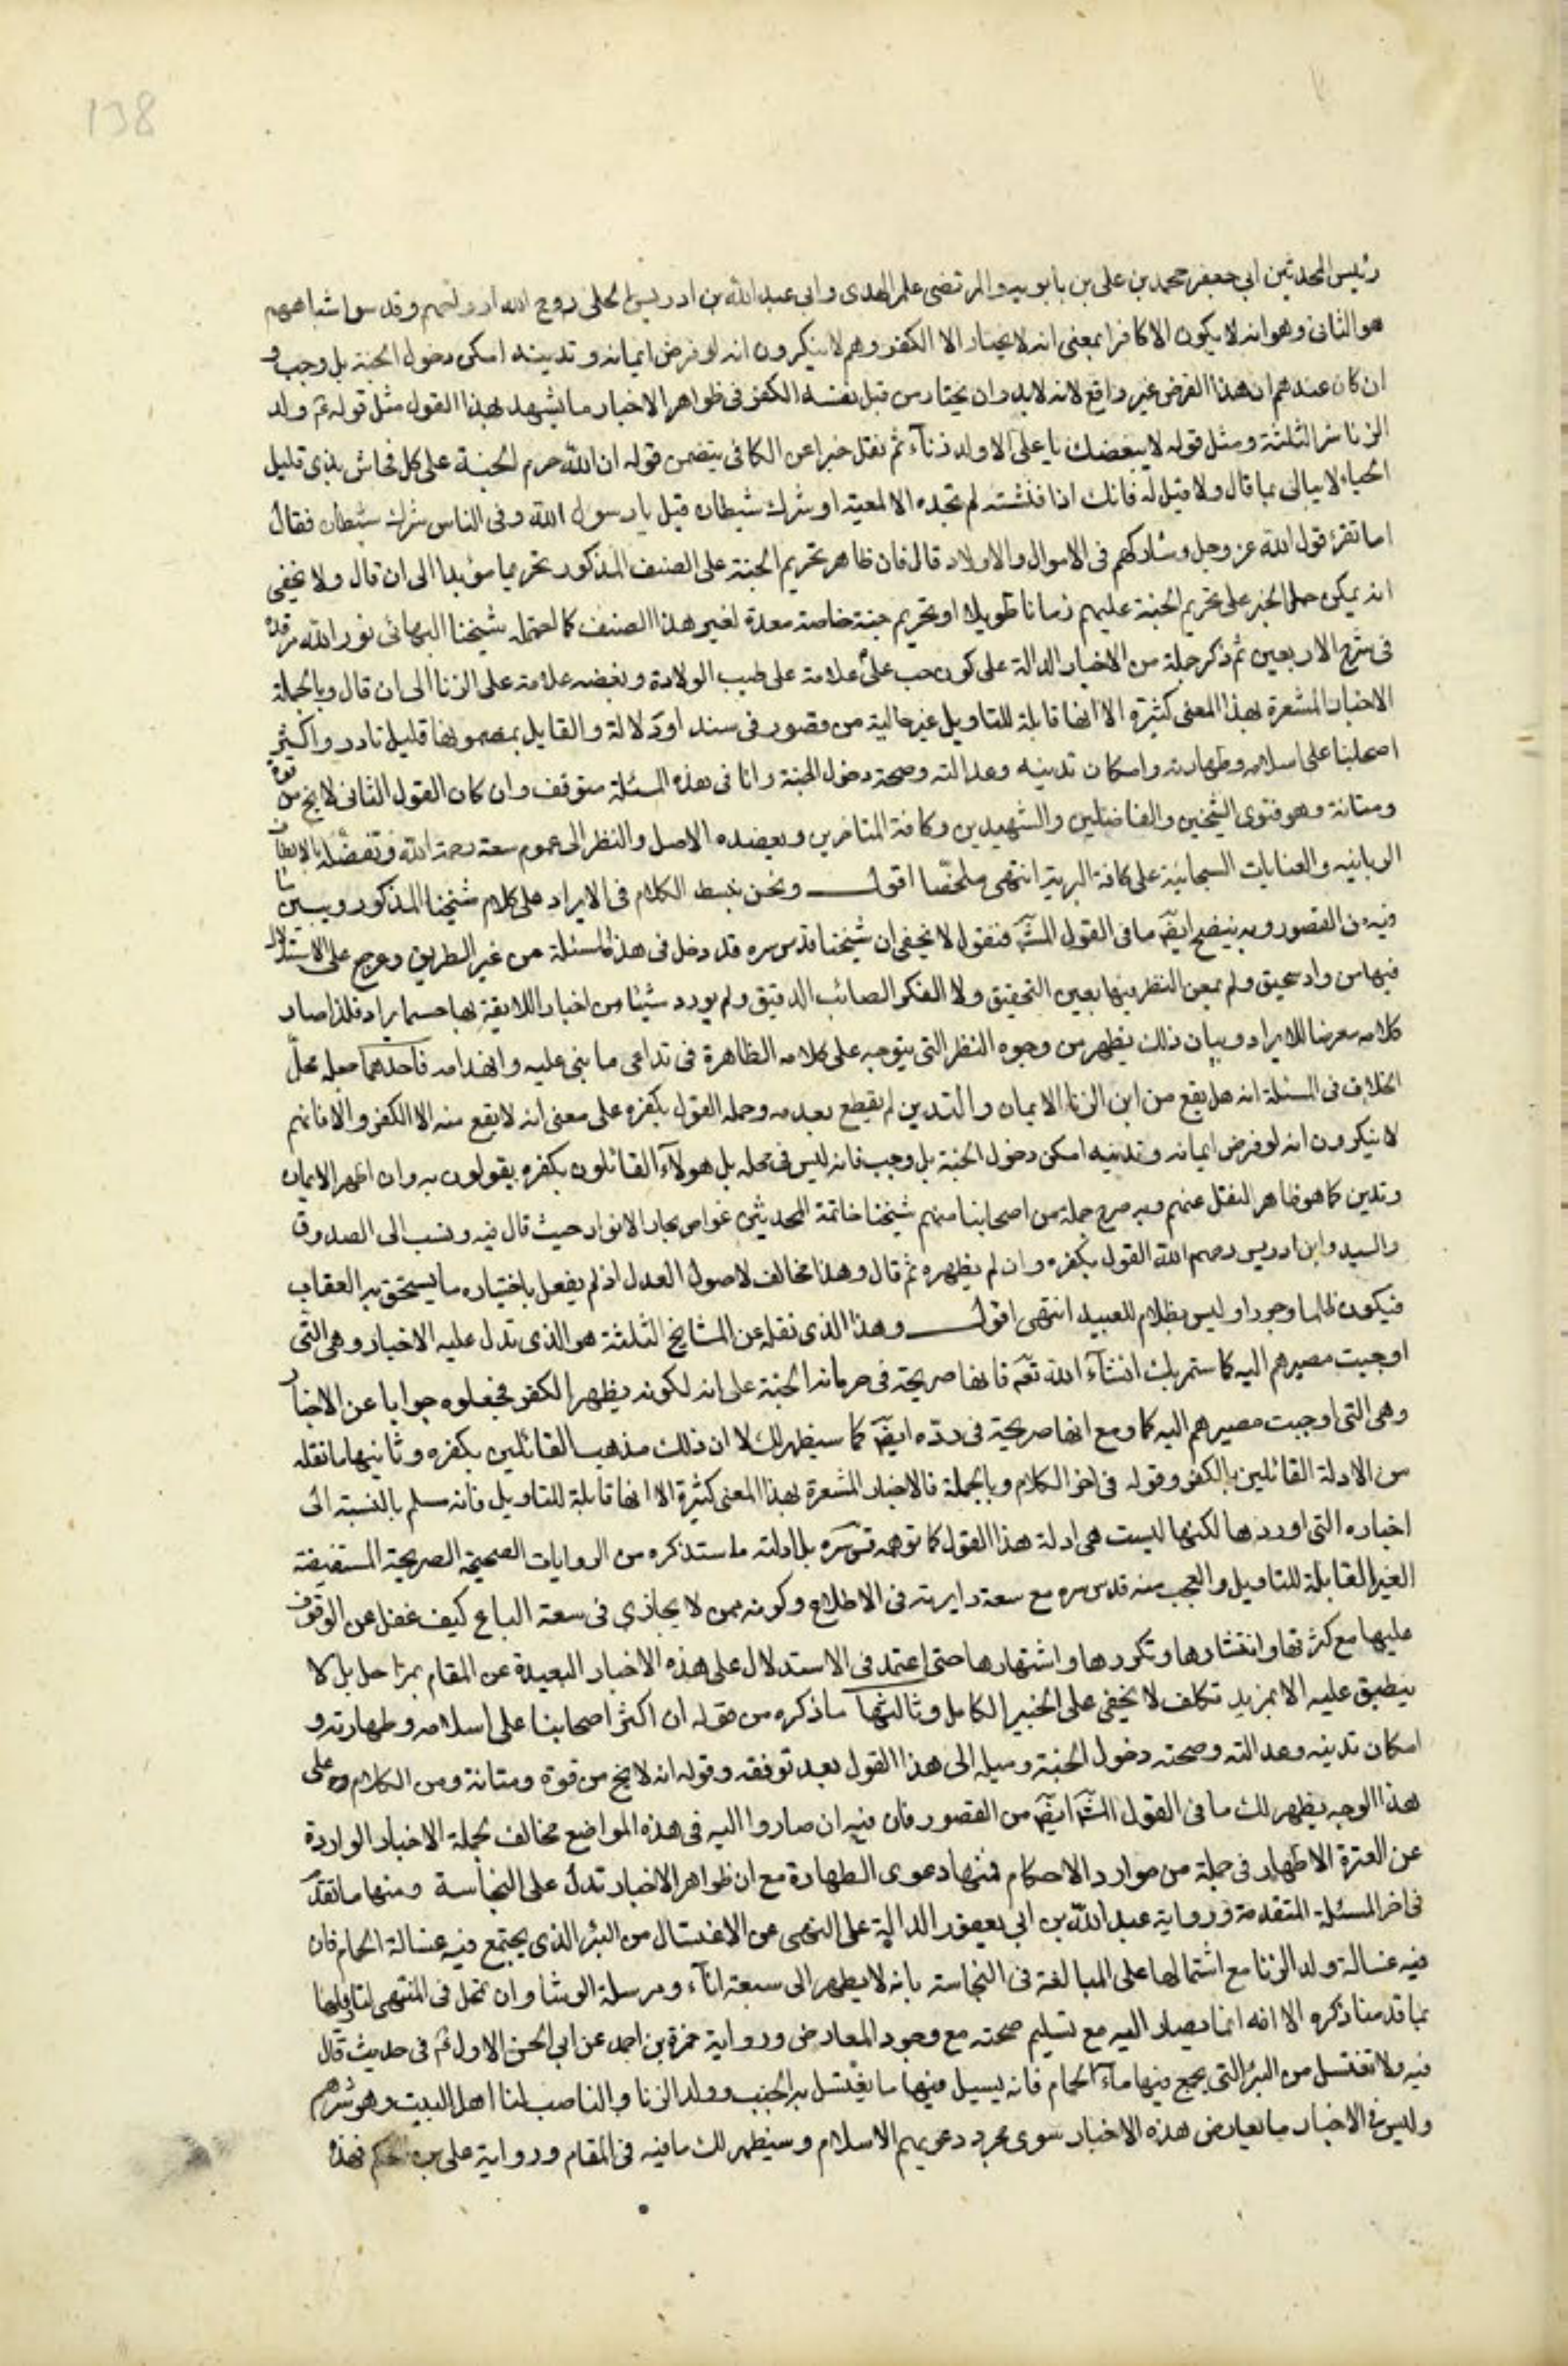 138
رئيس المحدثين ابي جعفر محمد بن على بن بابويه والمرتضى علم الهدى وابى عبد الله بن ادريس الحلى روح الله ارواحهم وقدس اشباحهم
هو الثانى وهو انه لا يكون الا كافرا بمعنى انه لا يختار الا الكفر وهم لا ينكرون انه لو فرض ايمانه وتدينه امكن دخول الجنة بل وجب و
ان كان عندهم ان هذا الفرض غير واقع لانه لابد وان يختار من قبل نفسه الكفر فى ظواهر الاخبار ما يشهد لهذا القول مثل قوله ع ولد
الزنا شر الثلثة ومثل قوله لا يبغضك يا على الا ولد زناء ثم نقل خبرا عن الكافى يتضمن قوله ان الله حرم الجنة على كل فحاش بذى قليل
الحياء لا يبالى بما قال ولا قيل له فانك اذا فتشته لم تجده الا لغية او شرك شيطان قيل يا رسول الله وفى الناس شرك شيطان فقال
اما تقرء قول الله عز وجل وشاركهم فى الاموال والاولاد قال فان ظاهر تحريم الجنة على الصنف المذكور تحريما مؤبدا الى ان قال ولا يخفى
انه يمكن حمل الخبر على تحريم الجنة عليهم زمانا طويلا او تحريم جنة خاصة معدة لغير هذا الصنف كما احتمله شيخنا البهائى نور الله مرقده
فى شرح الاربعين ثم ذكر جملة من الاخبار الدالة على كون حب على علامة على طيب الولادة وبغضه علامة على الزنا الى ان قال وبالجملة
الاخبار المشعرة بهذا المعنى كثيرة الا انها قابلة للتاويل غير خالية من قصور فى سند او دلالة والقايل بمضمونها قليل نادر واكثر
اصحابنا على اسلامه وطهارته وامكان تدينه وعدالته وصحة دخول الجنة وانا فى هذه المسئلة متوقف وان كان القول الثانى لا يخ من قوة
ومتانة وهو فتوى الشيخين والفاضلين والشهيدين وكافة المتاخرين ويعضده الاصل والنظر الى عموم سعة رحمة الله وتفضله بالالطاف
الربانيه والعنايات السبحانية على كافة البرية انتهى ملخصا اقول ونحن نبسط الكلام فى الايراد على كلام شيخنا المذكور ويبين ما
فيه من القصور وبه يتضح ايضا ما فى القول الثا فنقول لا يخفى ان شيخنا قدس سره قد دخل فى هذه المسئلة من غير الطريق وعرج على الاستدلال
فيها من واد سحيق ولم يمعن النظر فيها بعين التحقيق ولا الفكر الصائب الدقيق ولم يورد شيئا من اخبار اللايقة بها حسبما يراد فلذا صار
كلامه معرضا للايراد وبيان ذلك يظهر من وجوه النظر التى يتوجه على كلامه الظاهرة فى تداعى ما بنى عليه وانهدامه فاحدهما جعله محل
الخلاف فى المسئلة انه هل يقع من ابن الزنا الايمان والتدين لم يقطع بعدمه وحمله القول بكفره على معنى انه لا يقع منه الا الكفر والا فانهم
لا ينكرون انه لو فرض ايمانه وتدينه امكن دخول الجنة بل وجب فانه ليس فى محله بل هولاء القائلون بكفره يقولون به وان اظهر الايمان
وتدين كما هو ظاهر النقل عنهم وبه صرح جملة من اصحابنا منهم شيخنا خاتمة المحدثين غواص بحار الانوار حيث قال فيه ونسب الى الصدوق
والسيد وابن ادريس رحمهم الله القول بكفره وان لم يظهره ثم قال وهذا مخالف لاصول العدل اذ لم يفعل باختياره ما يستحق به العقاب
فيكون ظلما وجورا وليس بظلام للعبيد انتهى اقول وهذا الذى نقله عن المشايخ الثلثة هو الذى تدل عليه الاخبار وهى التى
اوجبت مصيرهم اليه كما ستمر بك انشاء الله تعه فانها صريحة فى حرمانه الجنة على انه لكونه يظهر الكفر فجعلوه جوابا عن الاخبار
وهى التى اوجبت مصيرهم اليه كما ومع انها صريحة فى رده ايضا كما سيظهر لك لا ان ذلك مذهب القائلين بكفره وثانيها ما نقله
من الادلة القائلين بالكفر وقوله فى اخر الكلام وبالجملة فالاخبار المشعرة بهذا المعنى كثيرة الا انها قابلة للتاويل فانه مسلم بالنسبة الى
اخباره التى اوردها لكنها ليست هى ادلة هذا القول كما توهمه قس سره بل ادلته ما ستذكره من الروايات الصحيحة الصريحة المستفيضة
الغير القابلة للتاويل والعجب منه قدس سره مع سعة دايرته فى الاطلاع وكونه ممن لا يجازى فى سعة الباع كيف غفل عن الوقوف
عليها مع كثرتها وانتشارها وتكررها واشتهارها حتى اعتمد فى الاستدلال على هذه الاخبار البعيدة عن المقام بمراحل بل لا
ينطبق عليه الا بمزيد تكلف لا يخفى على الخبير الكامل وثالثها ما ذكره من قوله ان اكثر اصحابنا على اسلامه وطهارته و
امكان تدينه وعدالته وصحته دخول الجنة وميله الى هذا القول بعد توقفه وقوله انه لا يخ من قوة ومتانة ومن الكلام على
هذا الوجه يظهر لك ما فى القول الثا ايضا من القصور فان فيه ان صاروا اليه فى هذه المواضع مخالف لجملة الاخبار الواردة
عن العترة الاطهار فى جملة من موارد الاحكام فمنها دعوى الطهارة مع ان ظواهر الاخبار تدل على النجاسة ومنها ما تقدم
فى اخر المسئلة المتقدمة ورواية عبد الله بن ابي يعفور الدالة على النهى عن الاغتسال من البئر الذى يجتمع فيه غسالة الحمام فان
فيه غسالة ولد الزنا مع اشتمالها على المبالغة فى النجاسة بانه لا يطهر الى سبعة اناء ومرسلة الوشا وان تمحل فى المنتهى لتاويلها
بما قدمنا ذكره الا انه انما يصار اليه مع تسليم صحته مع وجود المعارض ورواية حمزة بن احمد عن ابى الحسن الاول ع فى حديث قال
فيه ولا تغتسل من البئر التى يجمع فيها ماء الحمام فانه يسيل فيها ما يغتسل به الجنب وولد الزنا والناصب لنا اهل البيت وهو شرهم
وليس فى الاخبار ما يعارض هذه الاخبار سوى مجرد دعويهم الاسلام وسيظهر لك ما فيه فى المقام ورواية على بن الحكم فهذه